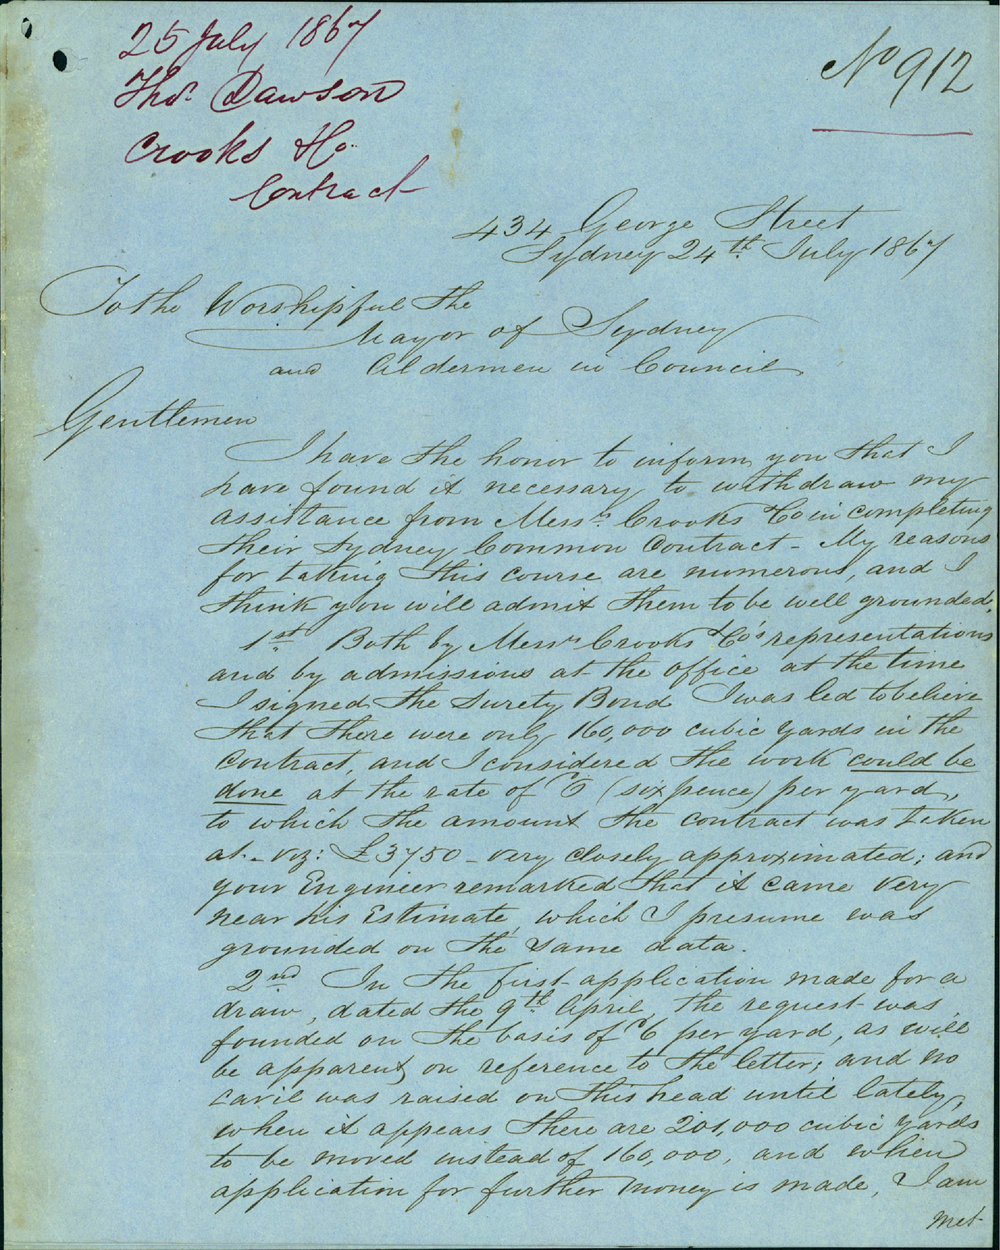 25 July 1867
Thos. Dawson
Crooks & Co.
Contract
No 912
434 George Street
Sydney 24th. July 1867
To the Worshipful the
Mayor of Sydney
and Aldermen in Council
Gentlemen
I have the honor to inform you that I
have found it necessary to withdraw my
assistance from Messrs. Crooks & Co in completing
their Sydney Common Contract - My reasons
for taking this course are numerous, and I
think you will admit them to be well grounded.
1st. Both by Messrs Crooks & Co's representations
and by admissions at the office at the time
I signed the Surety Bond I was led to believe
that there were only 160,000 cubic yards in the
Contract, and I considered the work could be
done at the rate of 6 (six pence) per yard,
to which the amount the contract was taken
at - viz: £3750 - very closely approximated; and
your Engineer remarked that it came very
near his Estimate, which I presume was
grounded on the same data.
2nd In the first application made for a
draw, dated the 9th. April, the request was
founded on the basis of 6 per yard, as will
be apparent on reference to the letter; and no
cavil was raised on this head until lately,
when it appears there are 201,000 cubic yards
to be moved instead of 160,000, and when
application for further money is made, I am
met